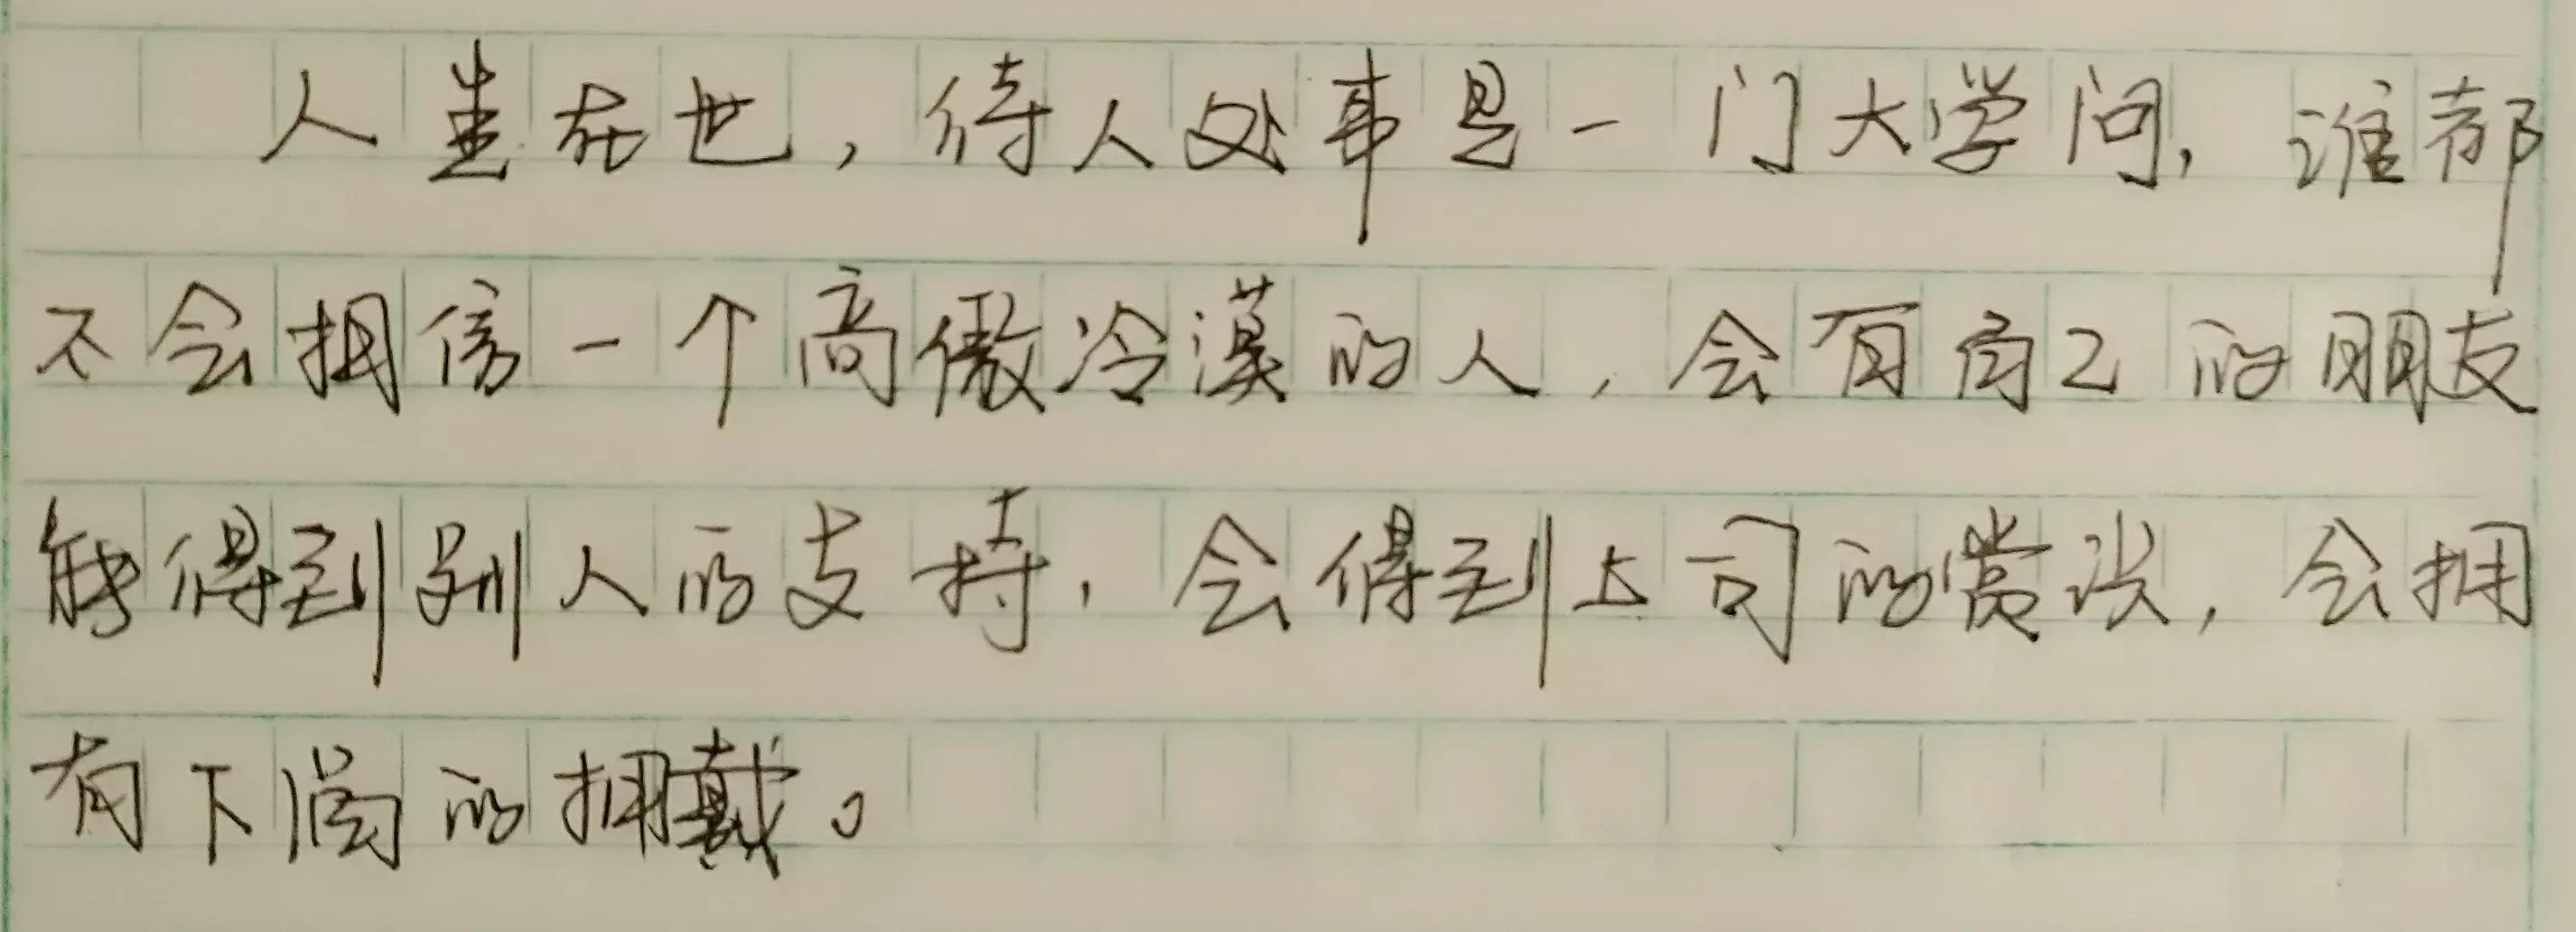 人生在世，待人处事是一门大学问，谁都
不会相信一个高傲冷漠的人，会有自己的朋友
能得到别人的支持，会得到上司的赏识，会拥
有下属的拥戴。